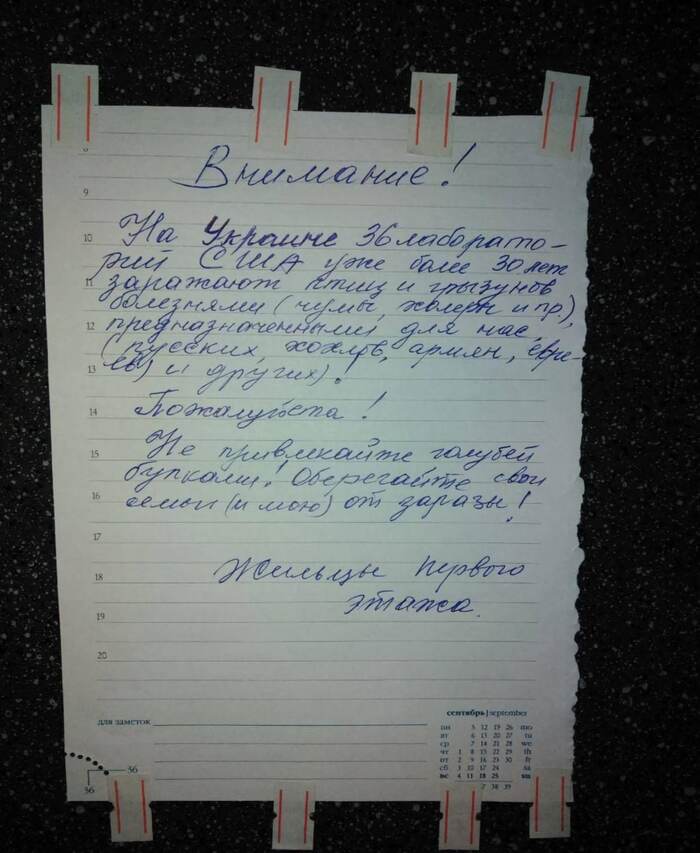 Внимание!
8
9
10
На Украине 36 лаборато-
рий США уже более 30 лет
11
заражают птиц и грызунов
болезнями (чумы, холеры и пр.),
12
предназначенными для нас,
(русских, хохлов, армян, евре-
13
ев) и других)!
14
Пожалуйста!
15
Не привлекайте голубей
булками! Оберегайте свои
16
семьи (и мою) от заразы!
17
18
Жильцы первого
этажа.
19
20
для заметок
сентябрь | september
пн 5 12 19 26 mo
вт 6 13 20 27 tu
ср 7 14 21 28 we
чт 1 8 15 22 29 th
пт 2 9 16 23 30 fr
сб 3 10 17 24 sa
вс 4 11 18 25 su
37 38 39
36
36